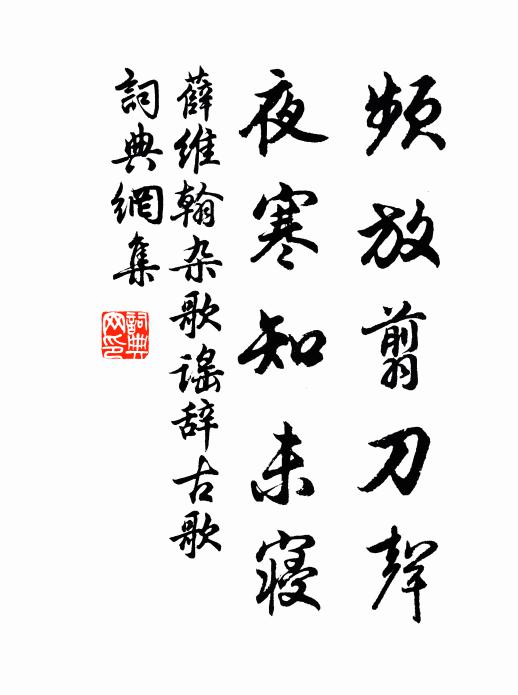 頻放翦刀聲
夜寒知未寝
薛維翰杂歌謠辞古歌
詞典網集
詞典
网印